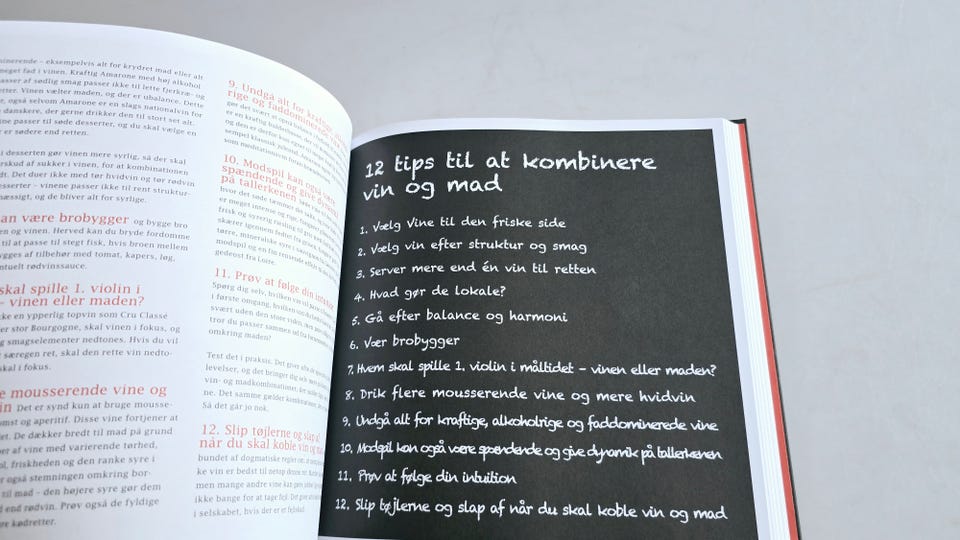 minerende – eksempelvis alt for krydret mad eller alt
meget fad i vinen. Kraftig Amarone med høj alkohol
passer af sødlig smag passer ikke til lette fjerkræ- og
retter. Vinen vælter maden, og der er ubalance. Dette
, også selvom Amarone er en slags nationalvin for
danskere, der gerne drikker den til stort set alt.
ne passer til søde desserter, og du skal vælge en
er sødere end retten.
i desserten gør vinen mere syrlig, så der skal
erskud af sukker i vinen, for at kombinationen
dt. Det duer ikke med tør hvidvin og tør rødvin
esserter – vinene passer ikke til rent struktur-
mæssigt, og de bliver alt for syrlige.
an være brobygger og bygge bro
en og vinen. Herved kan du bryde fordomme
til at passe til stegt fisk, hvis broen mellem
ygges af tilbehør med tomat, kapers, løg,
entuelt rødvinssauce.
skal spille 1. violin i
– vinen eller maden?
ke en ypperlig topvin som Cru Classé
er stor Bourgogne, skal vinen i fokus, og
smagselementer nedtones. Hvis du vil
særegen ret, skal den rette vin nedto-
skal i fokus.
e mousserende vine og
in Det er synd kun at bruge mousse-
omst og aperitif. Disse vine fortjener at
et. De dækker bredt til mad på grund
er af vine med varierende tørhed,
, friskheden og den ranke syre i
også stemningen omkring bor-
til mad – den højere syre gør dem
end rødvin. Prøv også de fyldige
re kødretter.
9. Undgå alt for kraftige,
rige og faddominerede
gør det svært at opnå balance
10. Modspil kan også være
spændende og give dynamik
på tallerkenen
hvor det søde tæmmer det salte
er meget intense og rige
frisk og syrerig riesling til
skærer igennem fedtet fra
tørre, mineralske
modspil og en fin rensende effekt
gedeost fra Loire.
11. Prøv at følge din intuition
Spørg dig selv, hvilken vin
i første omgang, hvilken
svært uden den store viden, men
tror du passer sammen ud fra
omkring maden?
Test det i praksis. Det giver ofte
levelser, og det bringer dig
vin- og madkombinationer, der
ne. Det samme gælder kombinationer
Så det går jo nok.
12. Slip tøjlerne og slap af
når du skal koble vin og mad
bundet af dogmatiske regler om, at
ke vin er bedst til netop denne ret.
men mange andre vine kan
ikke bange for at tage fejl. Det
i selskabet, hvis der er et fejlskud
12 tips til at kombinere
vin og mad
1. Vælg Vine til den friske side
2. Vælg vin efter struktur og smag
3. Server mere end én vin til retten
4. Hvad gør de lokale?
5. Gå efter balance og harmoni
6. Vær brobygger
7. Hvem skal spille 1. violin i måltidet – vinen eller maden?
8. Drik flere mousserende vine og mere hvidvin
9. Undgå alt for kraftige, alkoholrige og faddominerede vine
10. Modspil kan også være spændende og give dynamik på tallerkenen
11. Prøv at følge din intuition
12. Slip tøjlerne og slap af når du skal koble vin og mad